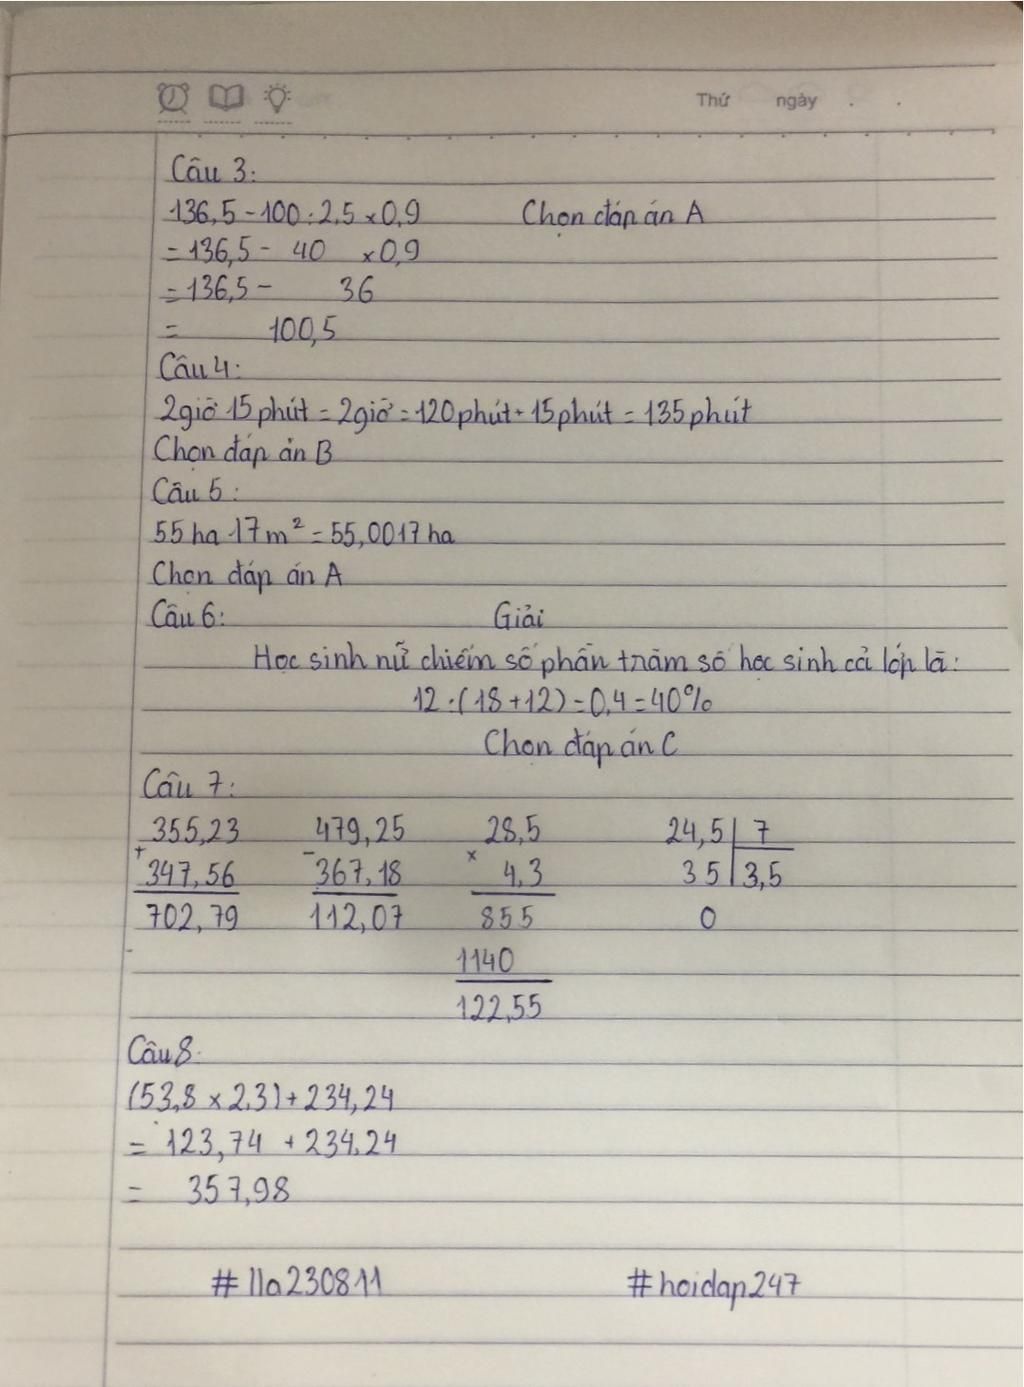 Thứ ngày . .
Câu 3:
136,5-100:2,5x0,9 Chọn đáp án A
=136,5- 40 x0,9
=136,5- 36
= 100,5
Câu 4:
2giờ 15 phút = 2giờ = 120 phút + 15 phút = 135 phút
Chọn đáp án B
Câu 5:
55 ha 17 m² = 55,0017 ha
Chọn đáp án A
Câu 6: Giải
Học sinh nữ chiếm số phần trăm số học sinh cả lớp là:
12:(18+12)=0,4=40%
Chọn đáp án C
Câu 7:
355,23 479,25 28,5 24,5 7
+ 347,56 - 367,18 x 4,3 35 3,5
702,79 112,07 855 0
1140
122,55
Câu 8.
(53,8 x 2,3)+234,24
= 123,74 +234,24
= 357,98
#lla230811 #hoidap247